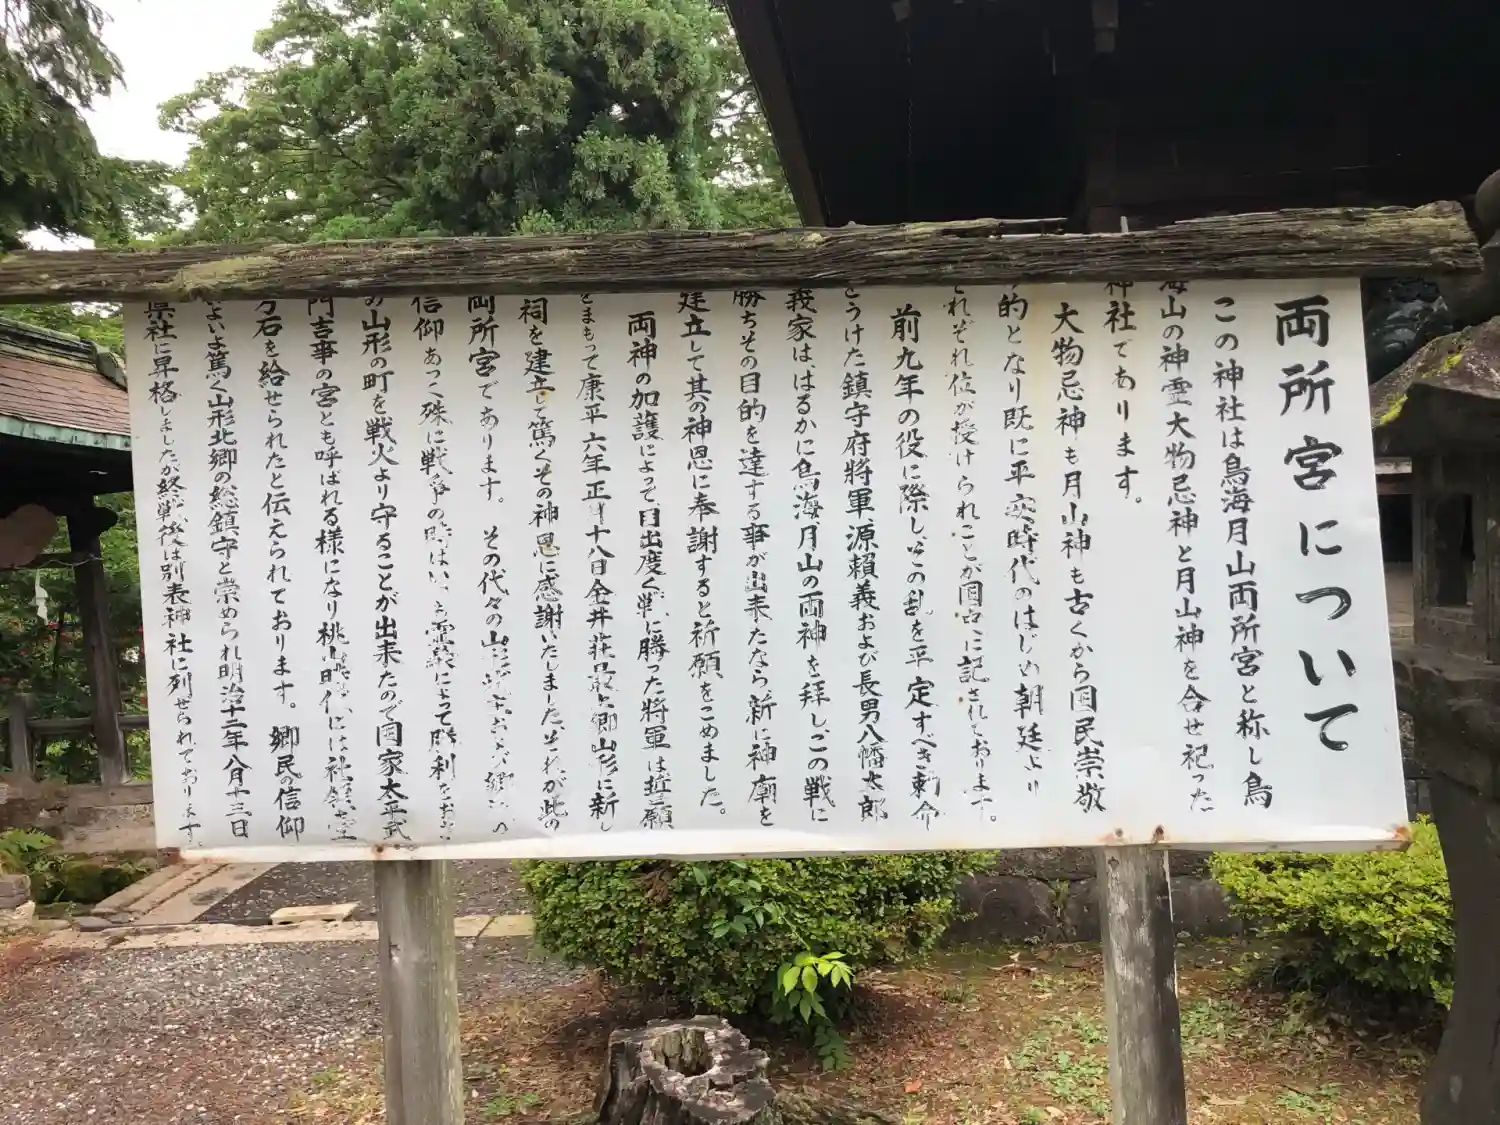 両所宮について
この神社は鳥海月山両所宮と称し鳥
海山の神霊大物忌神と月山神を合せ祀った
神社であります。
大物忌神も月山神も古くから国民崇敬
の的となり既に平安時代のはじめ朝廷より
それぞれ位が授けられことが国史に記されております。
前九年の役に際しこの乱を平定すべき勅命
をうけた鎮守府将軍源頼義および長男八幡太郎
義家は、はるかに鳥海月山の両神を拝しこの戦に
勝ちその目的を達する事が出来たなら新に神廟を
建立して其の神恩に奉謝すると祈願をこめました。
両神の加護によって目出度く戦に勝った将軍は誓願
をまもって康平六年正月十八日金井荘最上郷山形に新し
祠を建立して篤くその神恩に感謝いたしました。それが此の
両所宮であります。その代々の山形城主および郷民の
信仰あつく殊に戦争の時はいつも霊験によって勝利をおさ
の山形の町を戦火より守ることが出来たので国家太平武
門吉事の宮とも呼ばれる様になり桃山時代には社領壹
万石を給せられたと伝えられております。郷民の信仰
いよいよ篤く山形北郷の総鎮守と崇められ明治十二年八月十三日
県社に昇格しましたが終戦後は別表神社に列せられております。